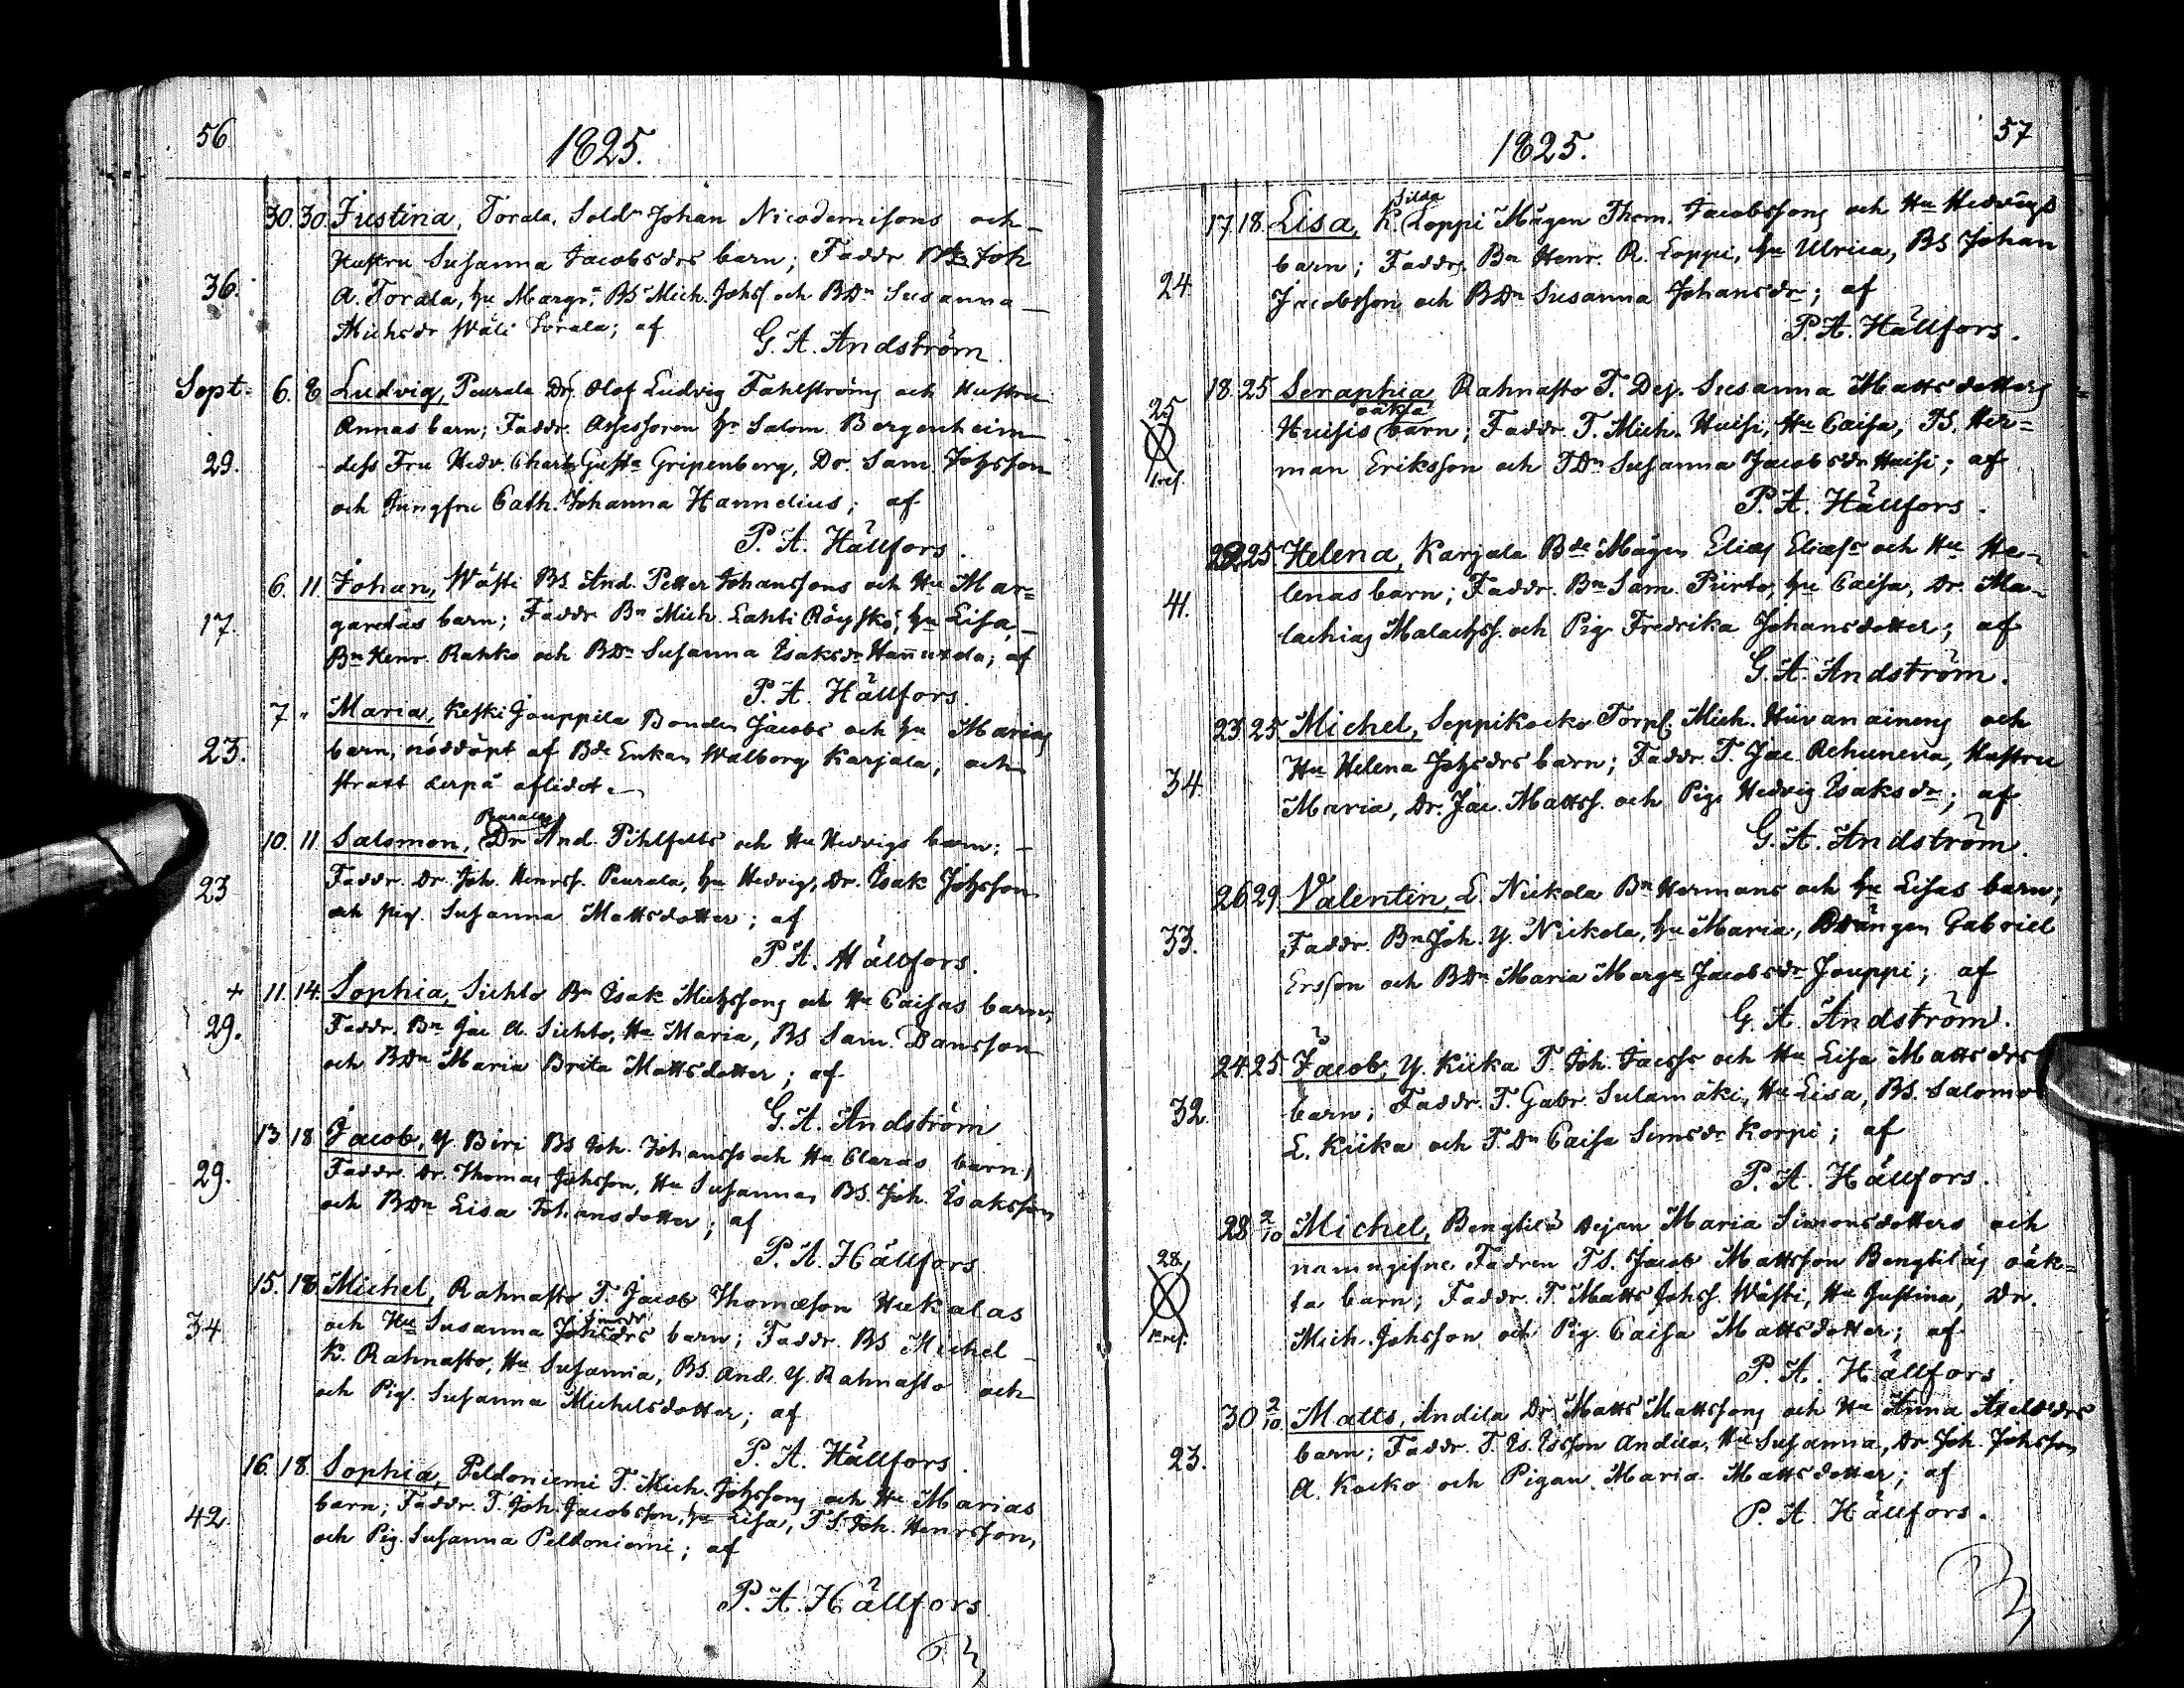 56
1825.
30. 30. Justina, Torala, Sold. Johan Nicodemisons och
Hustru Susanna Jacobsdrs barn; Faddr. Joh
36.
A. Torala, hu Margr. BS Mich. Johss. och BDr Susanna
Michsdr Wäli Torala; af
G. A. Andström.
Sept. 6. 8 Ludvig, Peurala Dr. Olof Ludvig Fahlströms och Hustru
Annas barn; Faddr. Assessoren hr Salom. Bergenheim
29.
dess Fru Hedv. Charl. Gust. Gripenberg, Dr. Sam. Johsson
och Jungfru Cath. Johanna Hannelius; af
P. A. Hällfors.
6. 11 Johan, Wästi BS. And. Petter Johanssons och Hu Mar=
17.
garetas barn; Faddr. Bn Mich. Lahti Röyskö, hu Lisa,
Bn Henr. Rahko och BDr Susanna Isaksdr Hannuxela; af
P. A. Hällfors.
7 " Maria, Keski Jouppila Bonden Jacobs och hu Marias
23.
barn, nöddöpt af Bde Enkan Walborg Karjala, och
straxt derpå aflidet.
Peurala
10. 11 Salomon, Dr And. Pihlfelts och Hu Hedvigs barn;
23
Faddr. Dr. Joh. Henrss. Peurala, hu Hedvig, Dr. Isak Johsson
och pig. Susanna Mattsdotter; af
P. A. Hällfors.
+ 11. 14. Sophia, Sihto Bn Isak Michssons och Hu Caisas barn;
29.
Faddr. Bn Jac A. Sihto, Hu Maria, BS Sam. Dansson
och BDr Maria Brita Mattsdotter; af
G. A. Andström
13. 18 Jacob, Y. Biri BS Joh. Johanss. och Hu Claras barn;
29.
Faddr. Dr. Thomas Johsson, Hu Susanna, BS. Joh. Isaksson
och BDr Lisa Johansdotter; af
P. A. Hällfors
15. 18 Michel, Rahnasto T. Jacob Thomæson Hukalas
34
och Hu Susanna Johsdrs barn; Faddr. BS Michel
K. Rahnasto, Hu Susanna, BS. And. Y. Rahnasto och
och Pig. Susanna Michelsdotter; af
P. A. Hällfors.
16. 18. Sophia, Peldoniemi T. Mich. Johssons och Hu Marias
42.
barn; Faddr. T. Joh. Jacobsson, hu Lisa, T.S. Joh. Henrsson,
och Pig. Susanna Peldoniemi; af
P. A. Hällfors
57
1825.
Silda
17. 18. Lisa, K. Loppi Mågen Thom. Jacobssons och Hu Hedvigs
24
barn; Faddr. Bn Henr. R. Loppi, hu Ulrica, BS Johan
Jacobsson och BDr Susanna Johansdr; af
P. A. Hällfors.
18. 25 Seraphia, Rahnasto T. Dej. Susanna Mattsdotters
25
oäkta
Huisis barn; Faddr. T. Mich. Huisi, Hu Caisa, TS. Her=
man Eriksson och TDr Susanna Jacobsdr Huisi; af
P. A. Hällfors.
22 25. Helena, Karjala Bde Mågen Elias Eliass och Hu He-
41.
lenas barn; Faddr. Bn Sam. Piirto, hu Caisa, Dr. Ma-
lachias Malachss. och Pig. Fredrika Johansdotter; af
G. A. Andström.
23 25. Michel, Seppikocko Torp. Mich. Huvanainens och
34
Hu Helena Johsdrs barn; Faddr. T. Jac. Rehuneva, Hustru
Maria, Dr. Jac. Mattss. och Pig. Hedvig Isaksdr; af
G. A. Andström.
26 29. Valentin, L. Nickola Bn Hermans och hu Lisas barn;
33.
Faddr. Bn Joh. Y. Nickola, hu Maria, Drängen Gabriel
Ersson och BDr Maria Margr Jacobsdr Jouppi; af
G. A. Andström.
24 25. Jacob, Y. Kiika T. Joh. Jacss. och Hu Lisa Mattsdrs
32.
barn; Faddr. T. Gabr. Sulamäki, Hu Lisa, BS. Salomo
L. Kiika och T. Dr Caisa Simsdr Korpi; af
P. A. Hällfors.
28 2/10 Michel, Bengtilä Dejan Maria Simonsdotters och
28.
namngifne Fadren TS. Jacob Mattsson Bengtiläs oäk=
ta barn; Faddr. T. Matts Johss. Wästi, Hu Justina, Dr.
Mich. Johsson och Pig. Caisa Mattsdotter; af
P. A. Hällfors.
30 2/10. Matts, Andila Dr Matts Mattssons och Hu Anna Axelsdrs
23.
barn; Faddr. T. Is. Isson Andila, Hu Susanna, Dr Joh. Johsson
A. Kocko och Pigan Maria Mattsdotter; af
P. A. Hällfors.